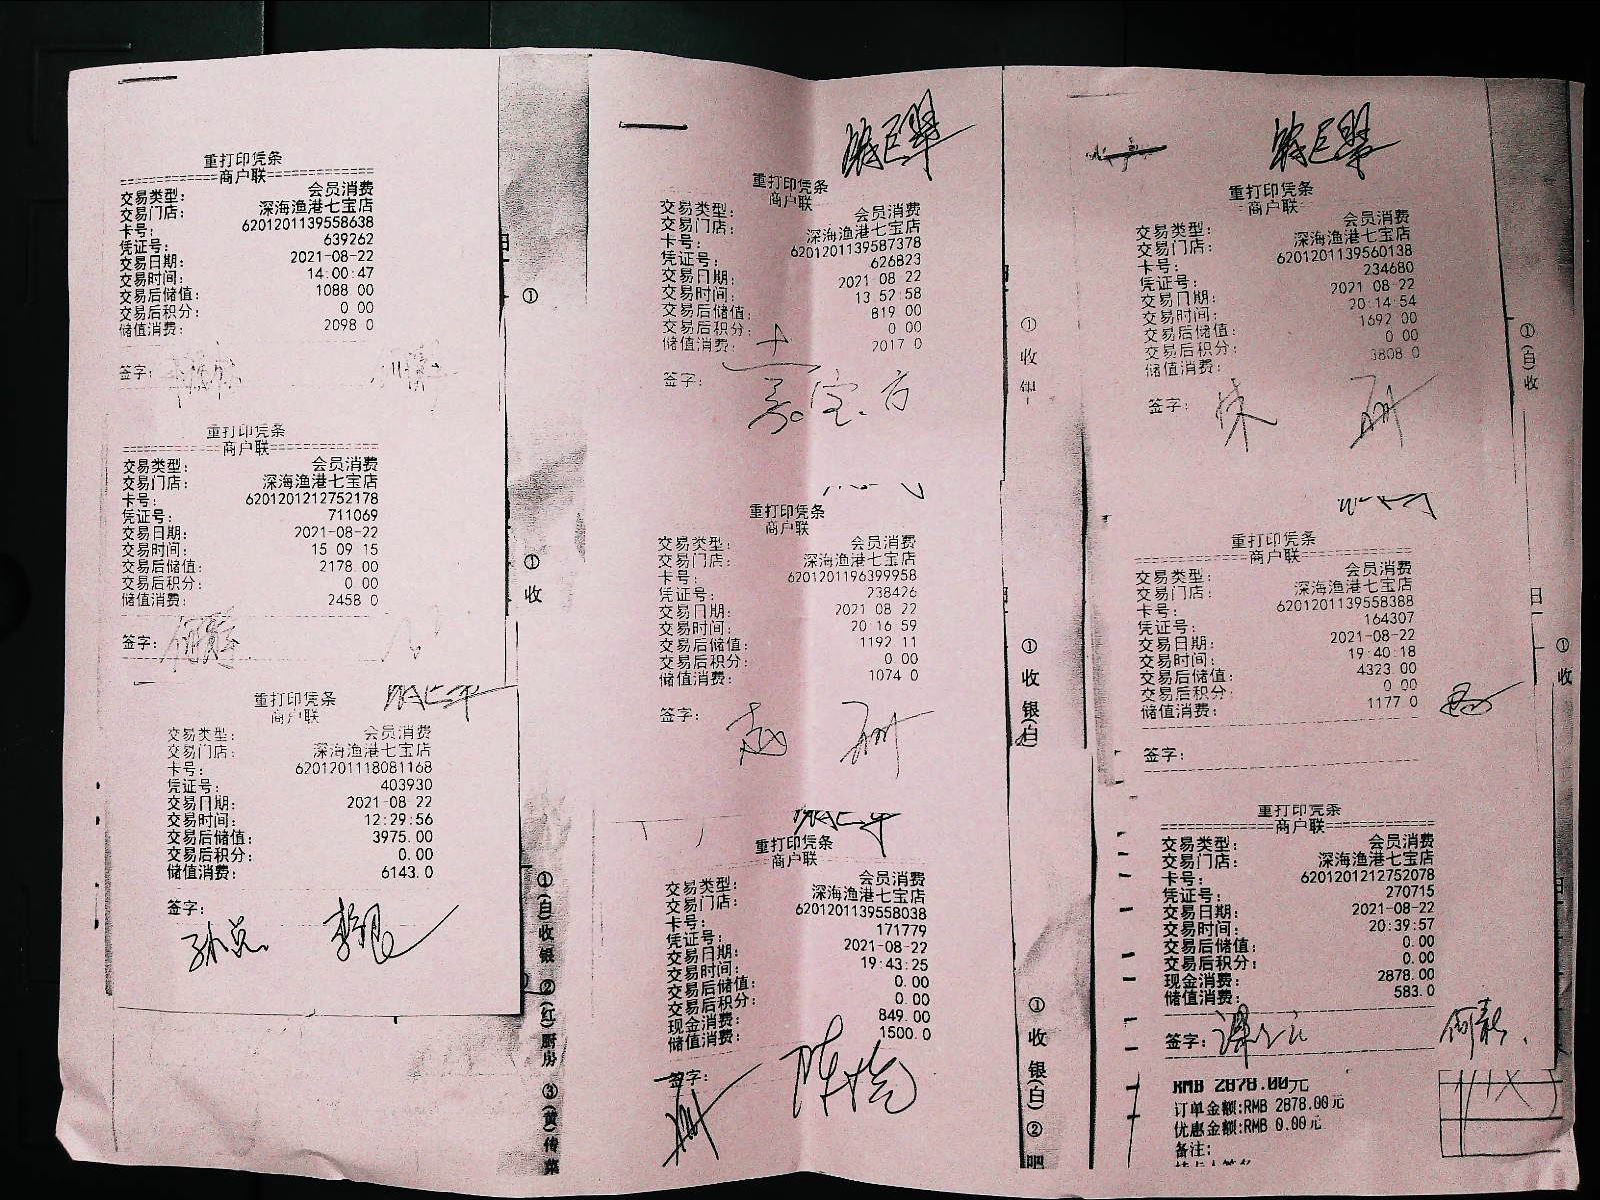 重打印凭条
商户联
交易类型: 会员消费
交易门店: 深海渔港七宝店
卡号: 6201201139558638
凭证号: 639262
交易日期: 2021-08-22
交易时间: 14:00:47
交易后储值: 1088 00
交易后积分: 0 00
储值消费: 2098 0
签字:
重打印凭条
商户联
交易类型: 会员消费
交易门店: 深海渔港七宝店
卡号: 6201201212752178
凭证号: 711069
交易日期: 2021-08-22
交易时间: 15 09 15
交易后储值: 2178 00
交易后积分: 0 00
储值消费: 2458 0
签字:
重打印凭条
商户联
交易类型: 会员消费
交易门店: 深海渔港七宝店
卡号: 6201201118081168
凭证号: 403930
交易日期: 2021-08 22
交易时间: 12:29:56
交易后储值: 3975.00
交易后积分: 0.00
储值消费: 6143.0
签字:
①
① 收
①(白)收银 ②(红)厨房 ③(黄)传菜
重打印凭条
商户联
交易类型: 会员消费
交易门店: 深海渔港七宝店
卡号: 6201201139587378
凭证号: 626823
交易日期: 2021 08 22
交易时间: 13 52:58
交易后储值: 819 00
交易后积分: 0 00
储值消费: 2017 0
签字:
重打印凭条
商户联
交易类型: 会员消费
交易门店: 深海渔港七宝店
卡号: 6201201196399958
凭证号: 238426
交易日期: 2021 08 22
交易时间: 20 16 59
交易后储值: 1192 11
交易后积分: 0 00
储值消费: 1074 0
签字: 赵
重打印凭条
商户联
交易类型: 会员消费
交易门店: 深海渔港七宝店
卡号: 6201201139558038
凭证号: 171779
交易日期: 2021-08-22
交易时间: 19:43:25
交易后储值: 0.00
交易后积分: 0.00
现金消费: 849.00
储值消费: 1500.0
签字:
① 收 银
① 收 银(白)
① 收 银(白) ② 吧
重打印凭条
商户联
交易类型: 会员消费
交易门店: 深海渔港七宝店
卡号: 6201201139560138
凭证号: 234680
交易日期: 2021 08-22
交易时间: 20:14:54
交易后储值: 1692 00
交易后积分: 0 00
储值消费: 3808 0
签字: 朱
重打印凭条
商户联
交易类型: 会员消费
交易门店: 深海渔港七宝店
卡号: 6201201139558388
凭证号: 164307
交易日期: 2021-08-22
交易时间: 19:40:18
交易后储值: 4323 00
交易后积分: 0 00
储值消费: 1177 0
签字:
重打印凭条
商户联
交易类型: 会员消费
交易门店: 深海渔港七宝店
卡号: 6201201212752078
凭证号: 270715
交易日期: 2021-08-22
交易时间: 20:39:57
交易后储值: 0.00
交易后积分: 0.00
现金消费: 2878.00
储值消费: 583.0
签字:
RMB 2878.00元
订单金额:RMB 2878.00元
优惠金额:RMB 0.00元
备注:
①(白)收
① 收